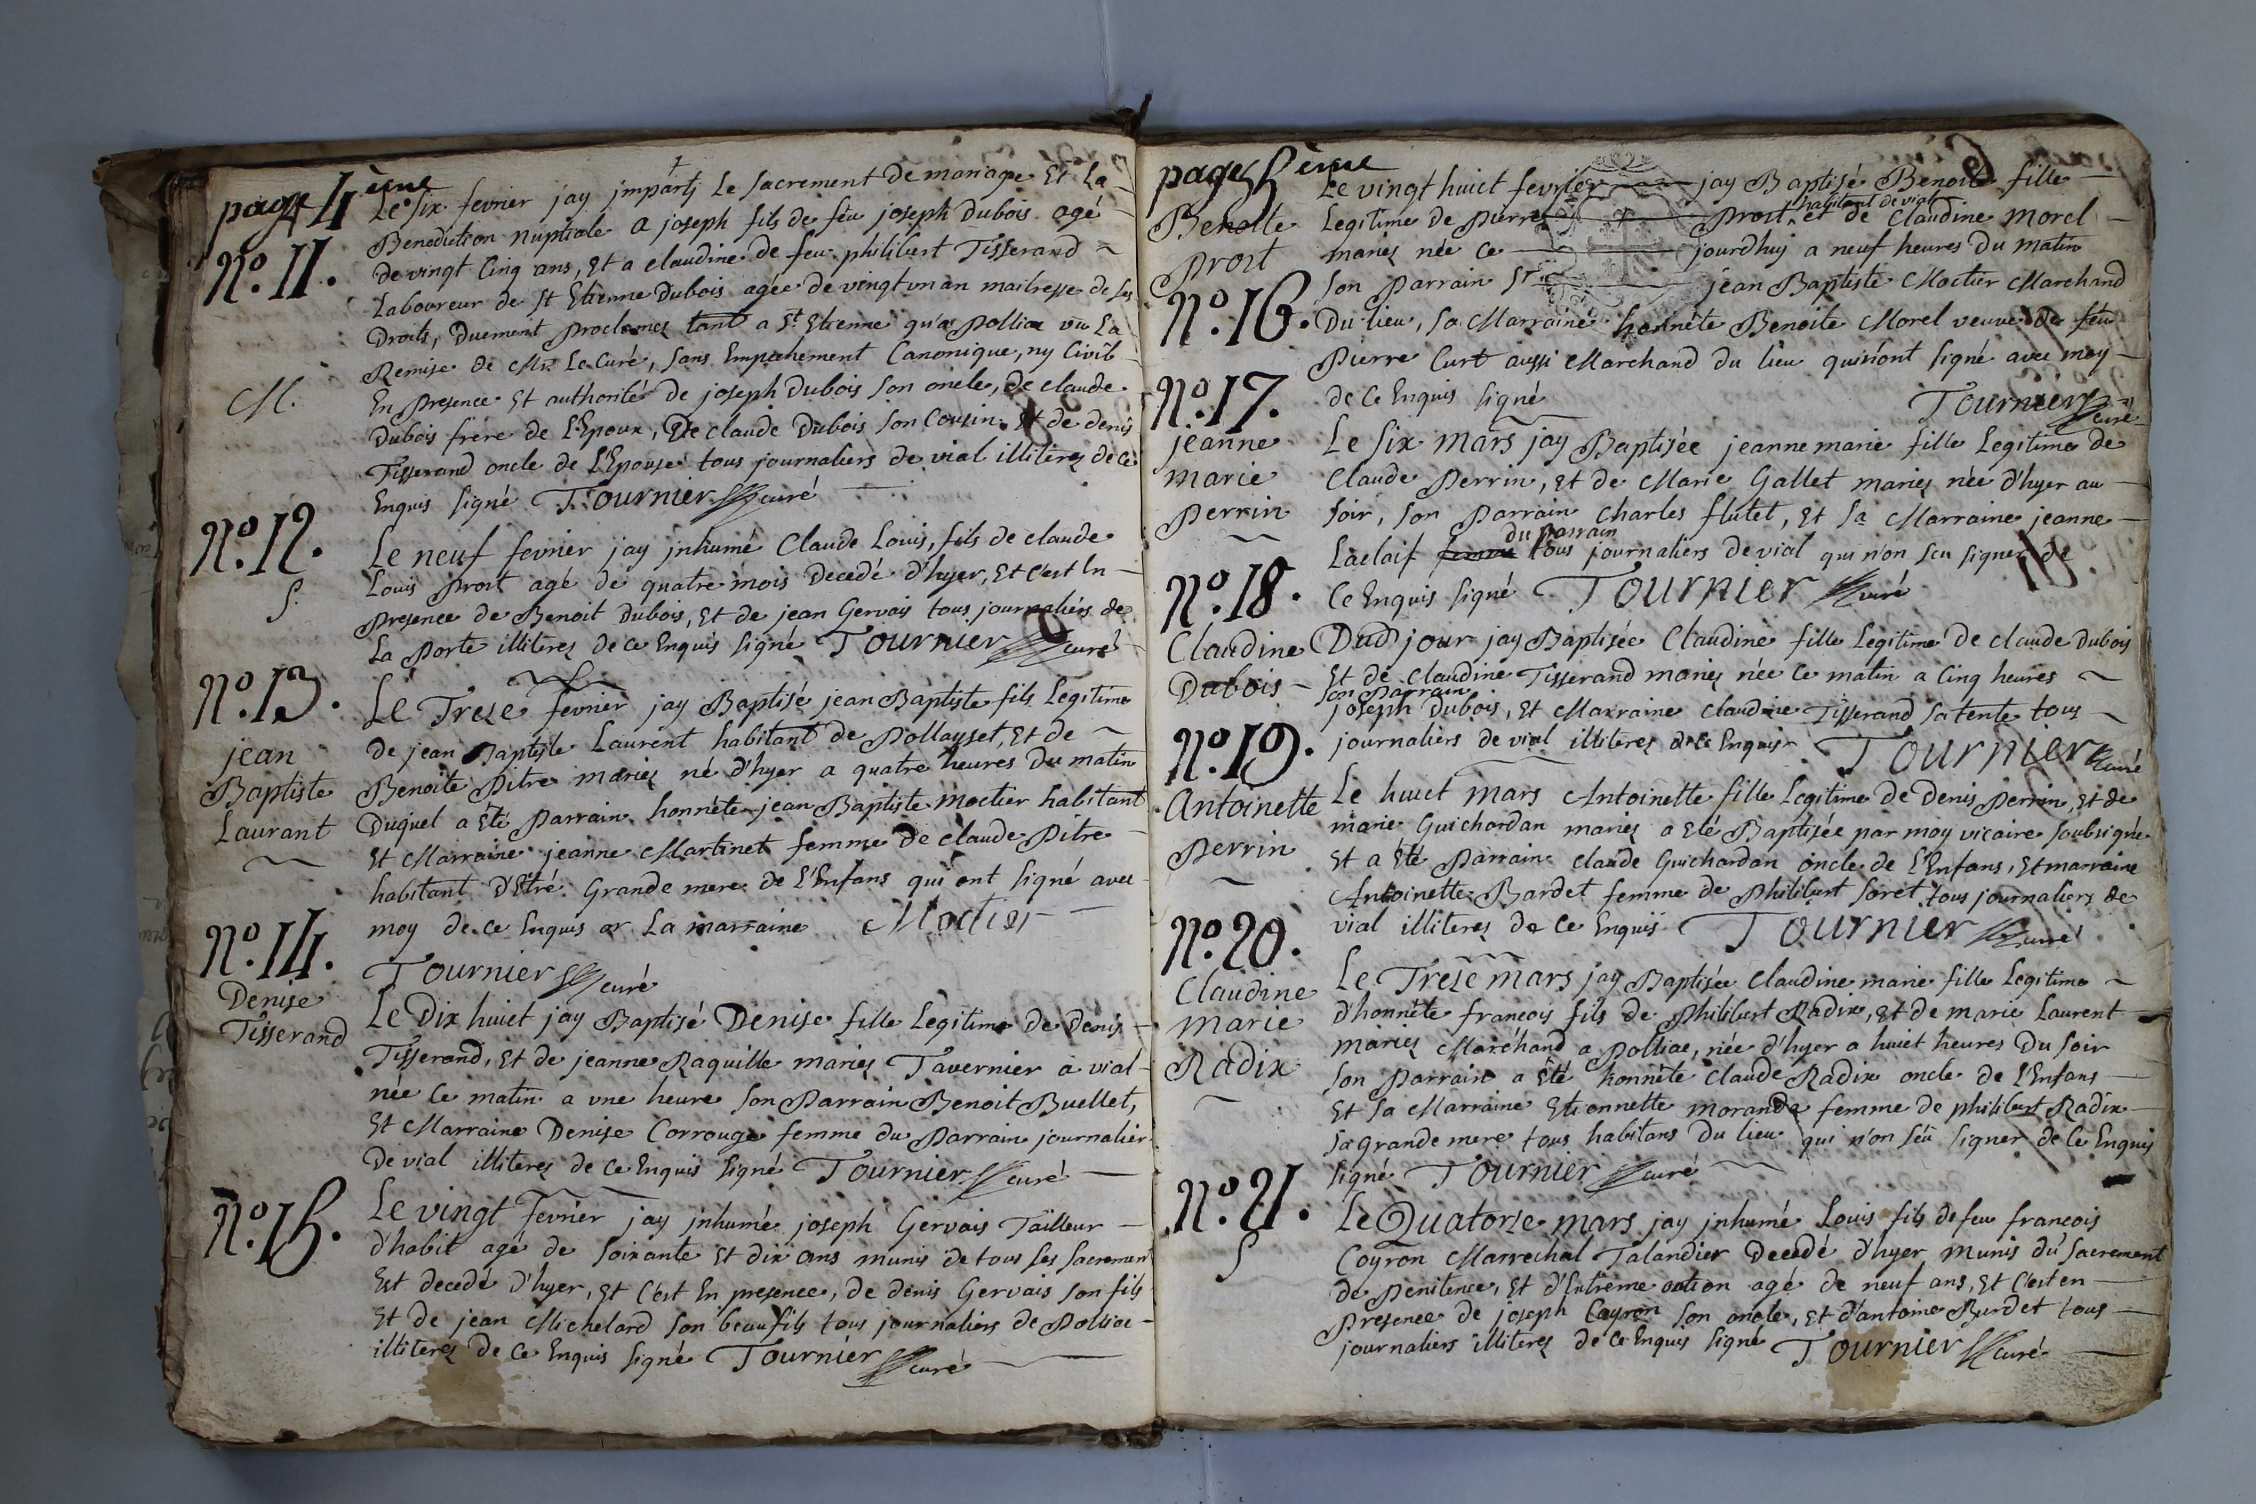 page 4ème
Le six fevrier jay imparti Le sacrement de mariage Et La
Benediction nuptiale a joseph fils de feu joseph Dubois agé
No. 11.
de vingt Cinq ans, Et a claudine de feu philibert Tisserand
Laboureur de St Etienne Dubois agée de vingt un an maitresse de ses
Droits, Duement Proclamez tant a St. Etienne qu'a Polliac vû La
Remise de Mr. Le Curé, sans Empechement Canonique, ny Civil
M.
En Presence Et authorité de joseph Dubois son oncle, de claude
Dubois frere de L'Epoux, De claude Dubois son Cousin Et de denis
Tisserand oncle de L'Epouse tous journaliers de vial illiterez de ce
Enquis signé Tournier curé
No. 12.
Le neuf fevrier jay jnhumé Claude Louis, fils de claude
Louis Prost agé de quatre mois Decedé d'hyer, Et c'est En
S.
Presence de Benoit Dubois, Et de jean Gervais tous journaliers de
La Porte illiterez de ce Enquis signé Tournier curé
No. 13.
Le Treze fevrier jay Baptisé jean Baptiste fils Legitime
jean
Baptiste
Laurant
de jean Baptiste Laurent habitant de Pollayset, Et de
Benoite Pitre mariez né d'hyer a quatre heures du matin
Duquel a Eté Parrain honnéte jean Baptiste moctier habitant
Et Marraine jeanne Martinet femme de claude Pitre
habitant D'Etré Grande mere de L'Enfans qui ont signé avec
moy de ce Enquis La marraine Moctier
Tournier curé
No. 14.
Denise
Tisserand
Le Dix huict jay Baptisé Denise fille Legitime de Denis
Tisserand, Et de jeanne Raquille mariez Tavernier a vial
née ce matin a vne heure son Parrain Benoit Buellet,
Et Marraine Denise Corrouge femme du Parrain journalier
De vial illiterez de ce Enquis signé Tournier curé
No. 15.
Le vingt fevrier jay jnhumé joseph Gervais Tailleur
d'habit agé de soixante Et dix ans munis de tous ses sacrement
Est decedé d'hyer, Et c'est En presence, de denis Gervais son fils
Et de jean Michelard son beaufils tous journaliers de Polliac
illiterez de ce Enquis signé Tournier curé
page 5ème
Benoite
Prost
No. 16.
Le vingt huict fevrier jay Baptisé Benoite fille
habitant de vial
Legitime de Pierre Prost et de Claudine morel
mariez née ce jourdhuy a neuf heures du matin
son Parrain Sr. jean Baptiste Moctier Marchand
Du lieu, sa Marraine honnête Benoite Morel veuve de feu
Pierre Curt aussi Marchand du lieu quiriont signé avec moy
de ce Enquis signé Tournier curé
No. 17.
jeanne
marie
Perrin
Le six mars jay Baptisée jeanne marie fille Legitime de
Claude Perrin, Et de Marie Gallet mariez née d'hyer au
soir, son Parrain Charles flutet, Et sa Marraine jeanne
du parrain
Laclaif femme tous journaliers de vial qui n'on sçu signer de
ce Enquis signé Tournier curé
No. 18.
Claudine
Dubois
Dud jour jay Baptisée Claudine fille Legitime de claude Dubois
Et de claudine Tisserand mariez née ce matin a Cinq heures
son Parrain
joseph Dubois, Et Marraine claudine Tisserand sa tente tous
journaliers de vial illiterez de ce Enquis Tournier curé
No. 19.
Antoinette
Perrin
Le huict mars Antoinette fille Legitime de Denis Perrin, Et de
marie Guichardan mariez a Eté Baptisée par moy vicaire soubsigné
Et a Eté Parrain claude Guichardan oncle de L'Enfans, Et marraine
Antoinette Bardet femme de Philibert Soret tous journaliers de
vial illiterez de ce Enquis Tournier curé
No. 20.
Claudine
Marie
Radix
Le Treze mars jay Baptisée Claudine marie fille Legitime
d'honnéte francois fils de Philibert Radix, Et de marie Laurent
mariez Marchand a Polliac, née d'hyer a huict heures Du soir
son Parrain a Eté honnéte claude Radix oncle de L'Enfans
Et sa Marraine Etionnette morand femme de philibert Radix
sa grande mere tous habitans du lieu qui n'on séu signer de ce Enquis
signé Tournier curé
No. 21.
S
Le Quatorze mars jay jnhumé Louis fils de feu francois
Coyron Marrechal Talandier Decedé d'hyer munis du sacrement
de Penitence, Et d'Extreme oction agé de neuf ans, Et c'est en
Presence de joseph Coyron son oncle, Et d'antoine Burdet tous
journaliers illiterez de ce Enquis signé Tournier curé